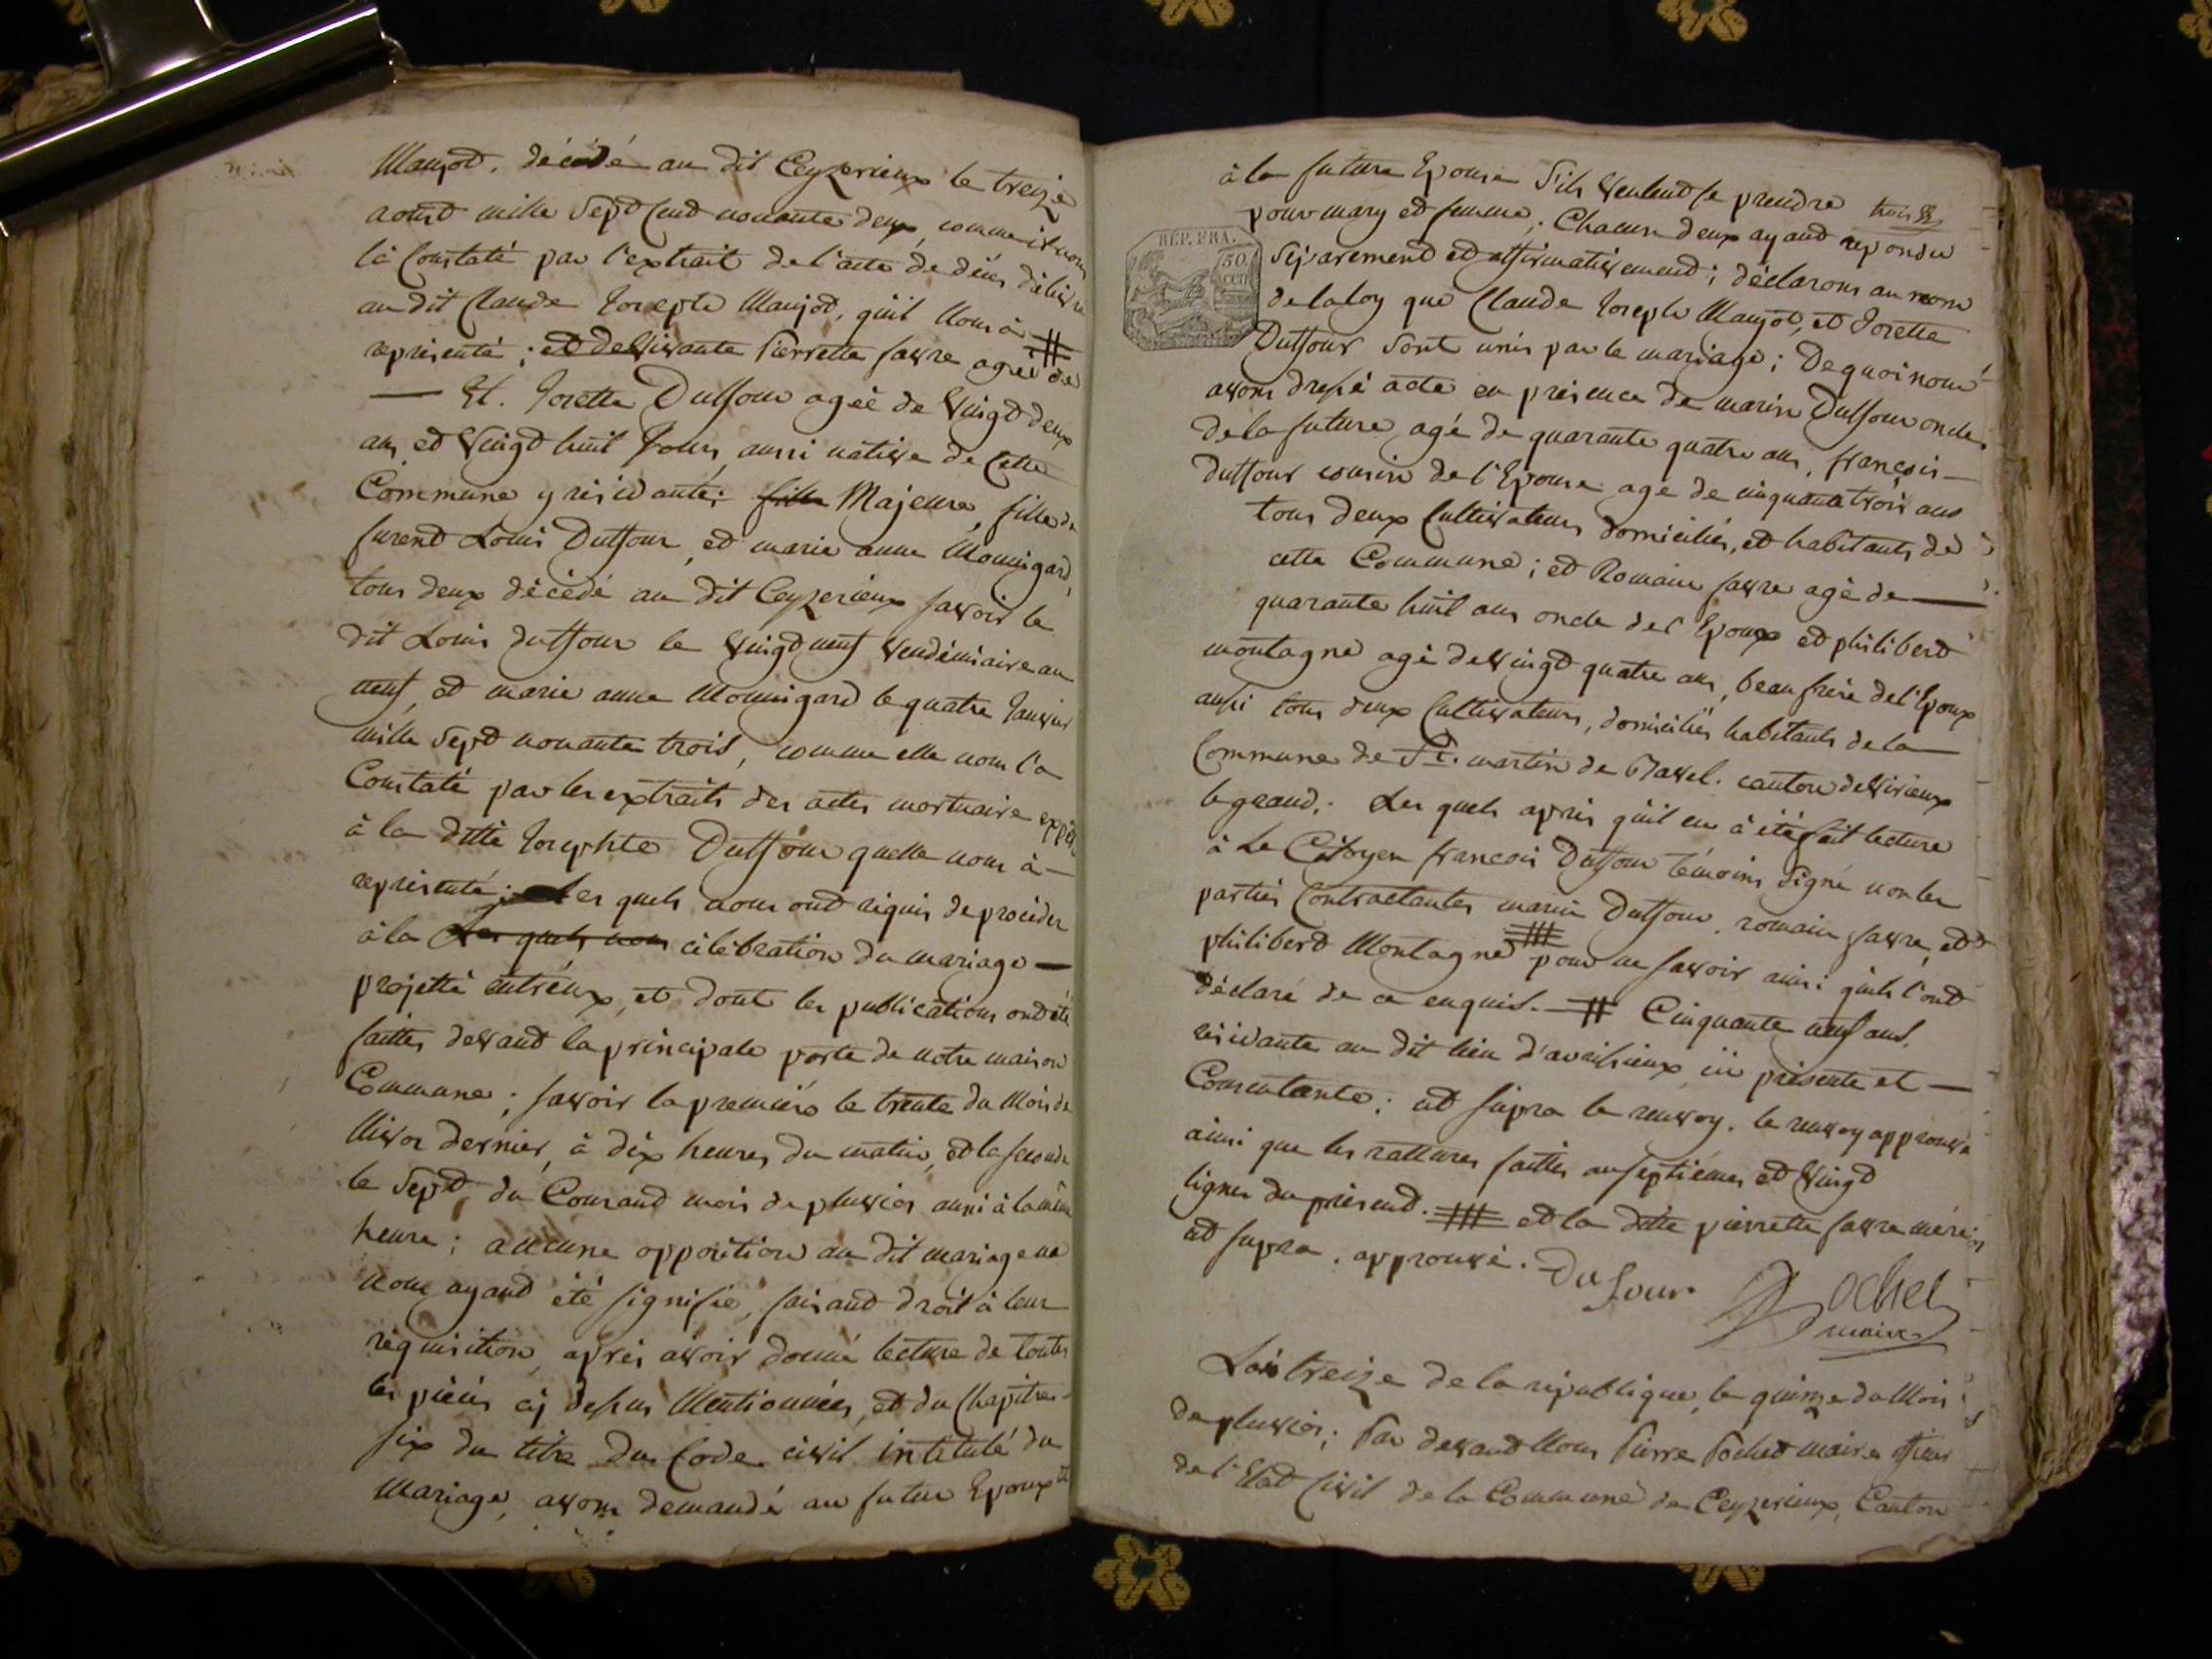 Maujot. décédé au dit Ceyzerieux le treize
aoust mille Sept Cend nonante deux, comme il nous
là Constaté par l'extrait de l'acte de décés délivré
au dit Claude Joseph Maujot, quil Nous à
représenté ; et de vivante Pierrette favre agée de #
— Et. Josette Duffour agée de Vingt deux
ans et Vingt huit Jours, aussi native de Cette
Commune y résidante; fille Majeure, fille de
furent Louis Duffour, et marie anne Mounigard,
tous deux décédé au dit Ceyzerieux savoir le
dit Louis duffour le Vingt neuf Vendémiaire an
neuf, et marie anne Mounigard le quatre Janvier
mille Sept nonante trois, comme elle nous l'a
Constaté par les extraits des actes mortuaire expéd
à la ditte Josephte Duffour quelle nous à —
représenté; Les quels nous ont réquis de procéder
à la Les quels nous célébration du mariage —
projetté entréux, et dont les publications ont été
faittes devant la principale porte de notre maison
Commune ; savoir la premiére le trente du Mois de
Nivos dernier, à dix heures du matin, et la seconde
le Sept du Courand mois de pluvios aussi à la même
heure ; aucune opposition au dit mariage ne
nous ayand été signifié, faisand droit à leur
réquisition, aprés avoir donné lecture de toutes
les piéces cÿ dessus Mentionnées, et du Chapitre
six du titre du Code civil intitulé du
Mariage, avons demandé au futur Epoux et
à la future Epouse S'ils Veulent se prendre trois
pour mary et femme ; Chacun deux ayand repondu
REP. FRA.
50
cen
Séparement et affirmativement ; déclarons au nom
de la loy que Claude Joseph Maujot, et Josette
Duffour Sont unis par le mariage ; De quoi nous
avons dressé acte en présence de marin Duffour oncle
de la future agé de quarante quatre ans, françois —
duffour cousin de l'Epouse agé de cinquante trois ans
tous deux Cultivateurs domiciliés, et habitants de
cette Commune ; et Romain favre agé de —
quarante huit ans oncle de l'Epoux et philibert
montagne agé de vingt quatre ans, beau frére de l'Epoux
aussi tous deux Cultivateurs, domiciliés habitants de la
Commune de St. martin de Bavel. canton de Virieux
le grand ; Les quels aprés quil en à été fait lecture
à Le Citoyen francois Duffour témoins Signé non les
parties Contractantes marin Duffour, romain favre, et
philibert Montagne # pour ne savoir ainsi quils l'ont
déclaré de ce enquis. — # Cinquante neuf ans.
résidante au dit lieu d'avrissieux ici présente et —
Consentante ; ut supra le renvoy. le renvoy approuvé
ainsi que les rattures faittes au septiémes et Vingt
lignes du présent. # et la ditte pierrette favre mére
ut supra. approuvé. Dufour Pochet
maire
Lan treize de la république, le quinze du Mois
de pluvios ; Par devant Nous Pierre Pochet maire officier
de l'Etat Civil de la Commune de Ceyzerieux, Canton